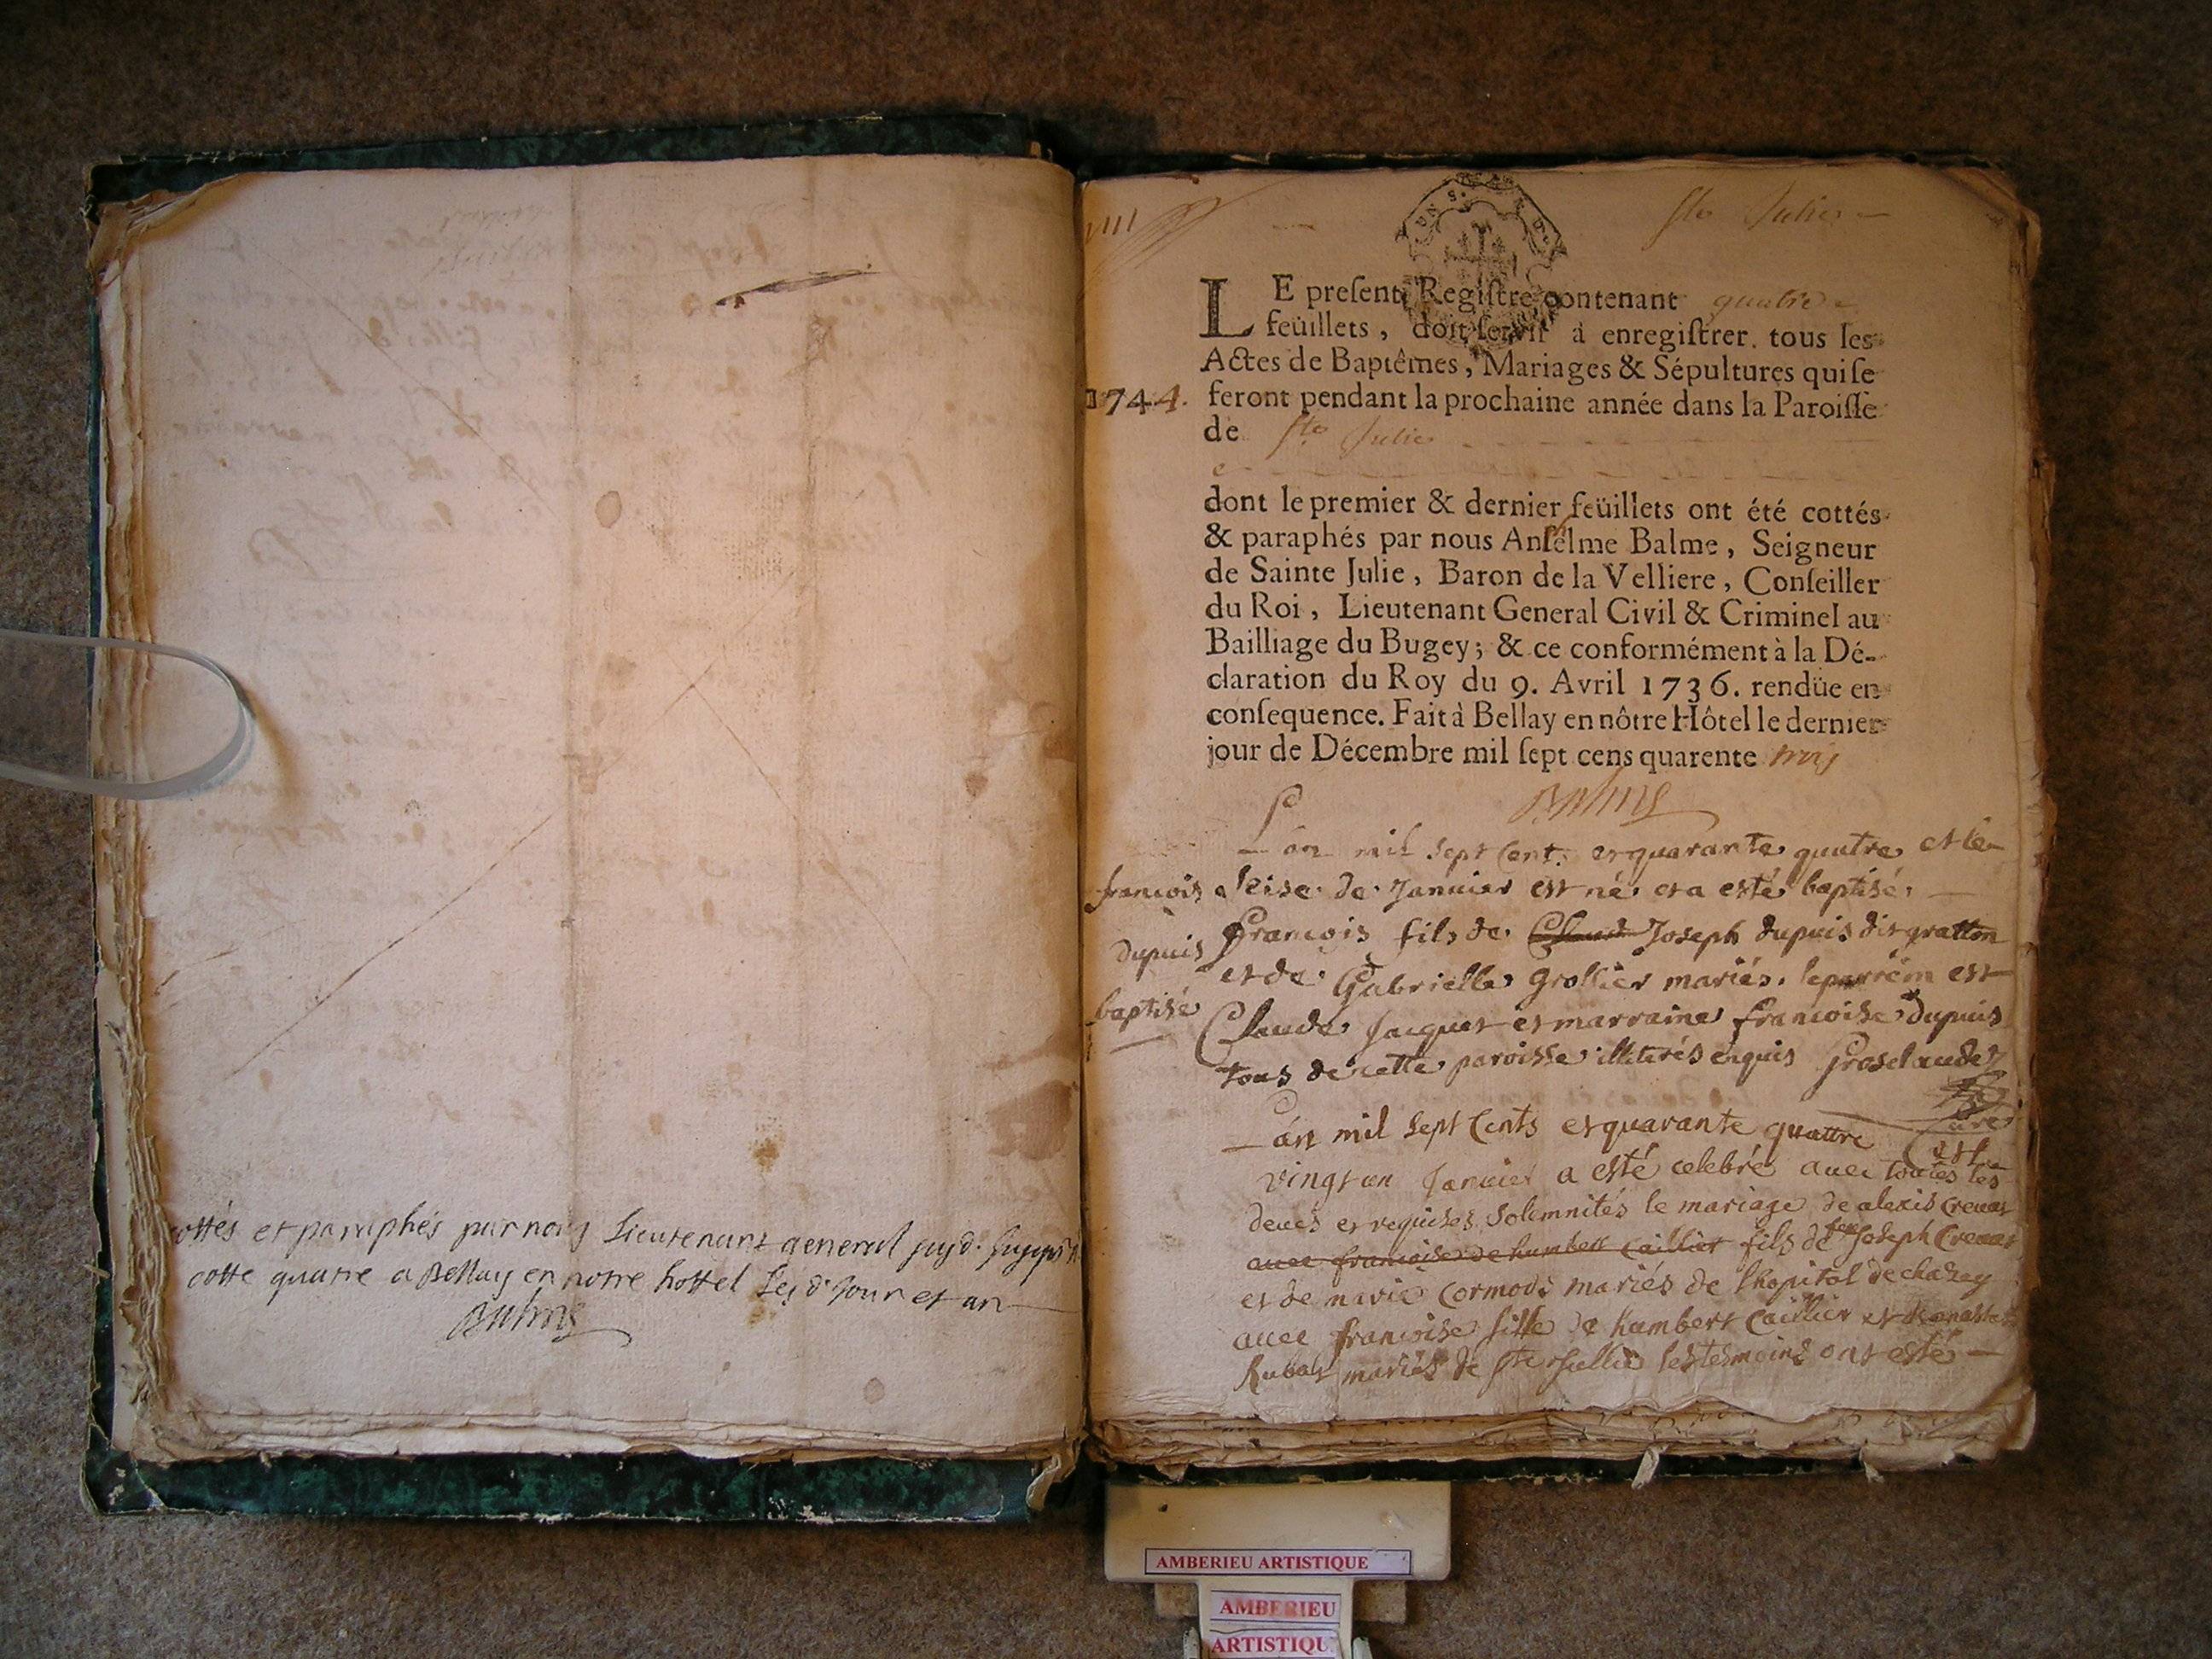 cottés et paraphés par nous Lieutenant general
cotte quatre a Bellay en notre hottel les d. jour et an
Balme
Ste Julie
LE preſent Regiſtre contenant quatre
feüillets, doit ſervir à enregiſtrer tous les
Actes de Baptêmes, Mariages & Sépultures qui ſe
1744.
feront pendant la prochaine année dans la Paroiſſe
de Ste Julie
dont le premier & dernier feüillets ont été cottés
& paraphés par nous Anſelme Balme, Seigneur
de Sainte Julie, Baron de la Velliere, Conſeiller
du Roi, Lieutenant General Civil & Criminel au
Bailliage du Bugey; & ce conformément à la Dé-
claration du Roy du 9. Avril 1736. rendüe en
conſequence. Fait à Bellay en nôtre Hôtel le dernier
jour de Décembre mil ſept cens quarente trois
Balme
Lan mil sept cent et quarante quatre et le
francois
seise de Janvier est né et a esté baptisé
dupuis
François fils de Claude Joseph dupuis dit gratton
et de Gabrielle Grollier mariés. le parrein est
baptisé
Claude Jacquet et marraine francoise dupuis
tous de cette paroisse illiterés enquis Grosclaude
Curé
Lan mil sept cents et quarante quattre et le
vingt un Janvier a esté celebré avec toutes les
deues et requises solemnités le mariage de alexis Crevat
avec francoise de humbert Caillier fils de feu Joseph Crevat
et de marie Cormods mariés de lhopital de chazey
avec francoise fille de humbert Caillier et de
Rubat mariés de ste Jullie les tesmoins ont esté
AMBERIEU ARTISTIQUE
AMBERIEU
ARTISTIQU